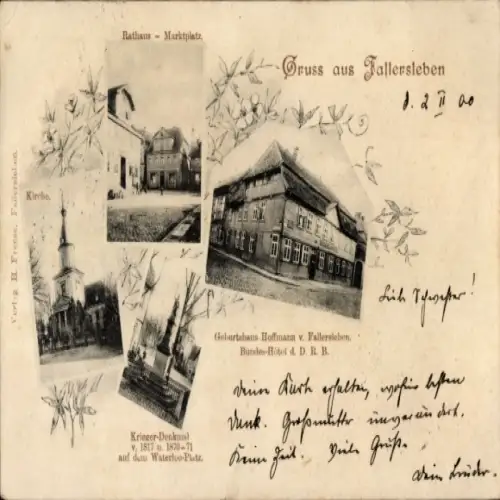 Rathaus - Marktplatz.
Gruss aus Fallersleben
d. 2 II 00
Kirche.
Verlag H. Freese, Fallersleben.
Geburtshaus Hoffmann v. Fallersleben.
Bundes-Hôtel d. D. R. B.
Krieger-Denkmal
v. 1817 u. 1870-71
auf dem Waterloo-Platz.
Liebe Schwester!
Deine Karte erhalten, wofür besten
Dank. Großmutter unverändert.
Keine Zeit. Viele Grüße.
Dein Bruder.